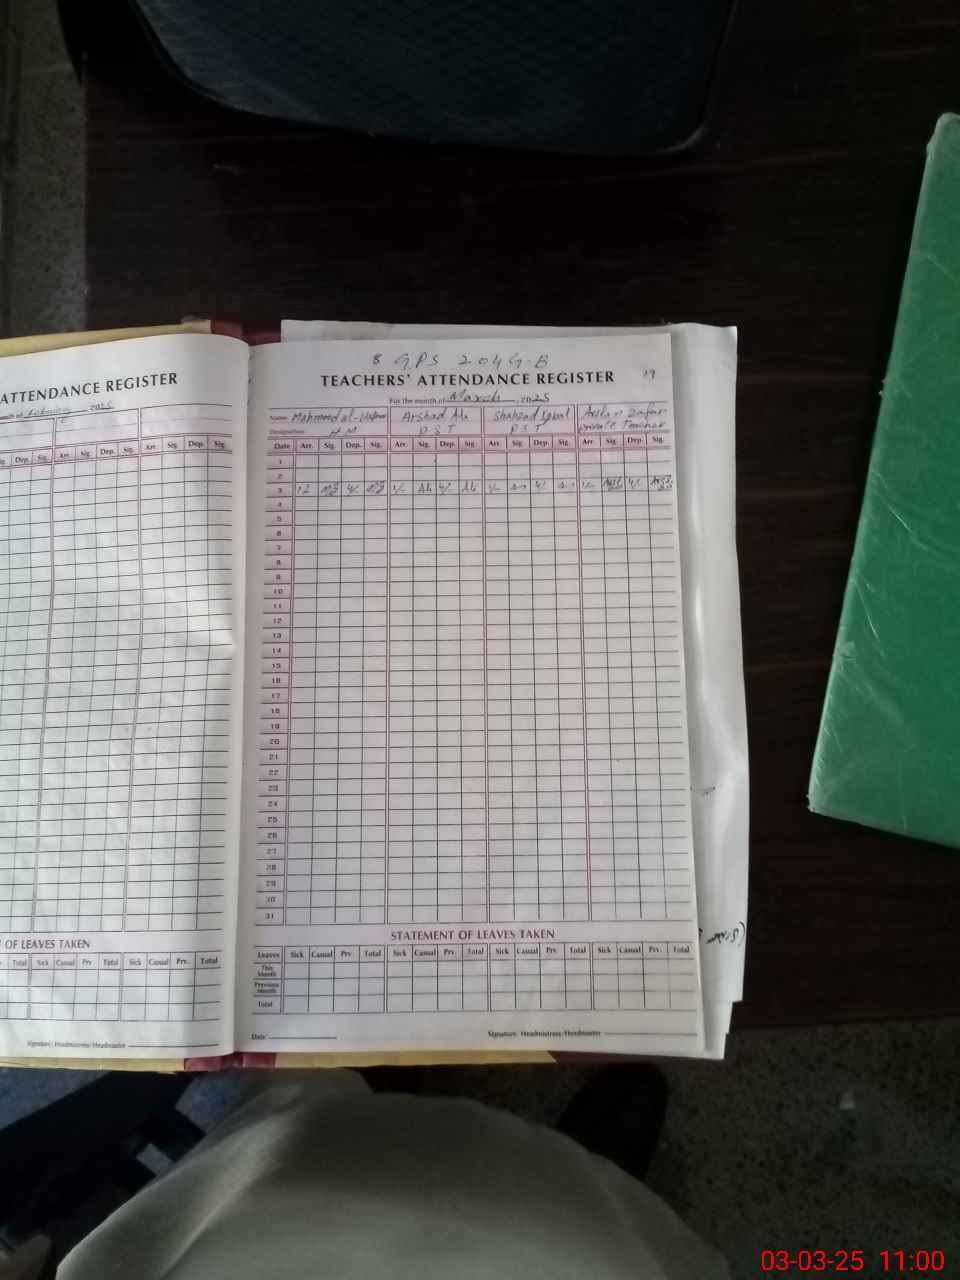 ATTENDANCE REGISTER
February 2025
Sig. Dep. Sig. Arr. Sig. Dep. Sig. Arr. Sig. Dep. Sig.
OF LEAVES TAKEN
Total Sick Casual Prv. Total Sick Casual Prv. Total
Signature: Headmistress/Headmaster
8 GPS 204 G-B
TEACHERS' ATTENDANCE REGISTER 19
For the month of March 2025
Name Arshad Ali Shahzad Iqbal Arslan Zafar
Designation H M P S T P S T private Teacher
Date Arr. Sig. Dep. Sig. Arr. Sig. Dep. Sig. Arr. Sig. Dep. Sig. Arr. Sig. Dep. Sig.
1
2
3 Ali Ali
4
5
6
7
8
9
10
11
12
13
14
15
16
17
18
19
20
21
22
23
24
25
26
27
28
29
30
31
STATEMENT OF LEAVES TAKEN
Leaves Sick Casual Prv. Total Sick Casual Prv. Total Sick Casual Prv. Total Sick Casual Prv. Total
This Month
Previous Month
Total
Date Signature: Headmistress/Headmaster
03-03-25 11:00